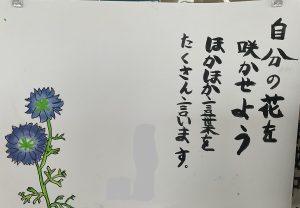 自分の花を
咲かせよう
ほかほか言葉を
たくさん言います。